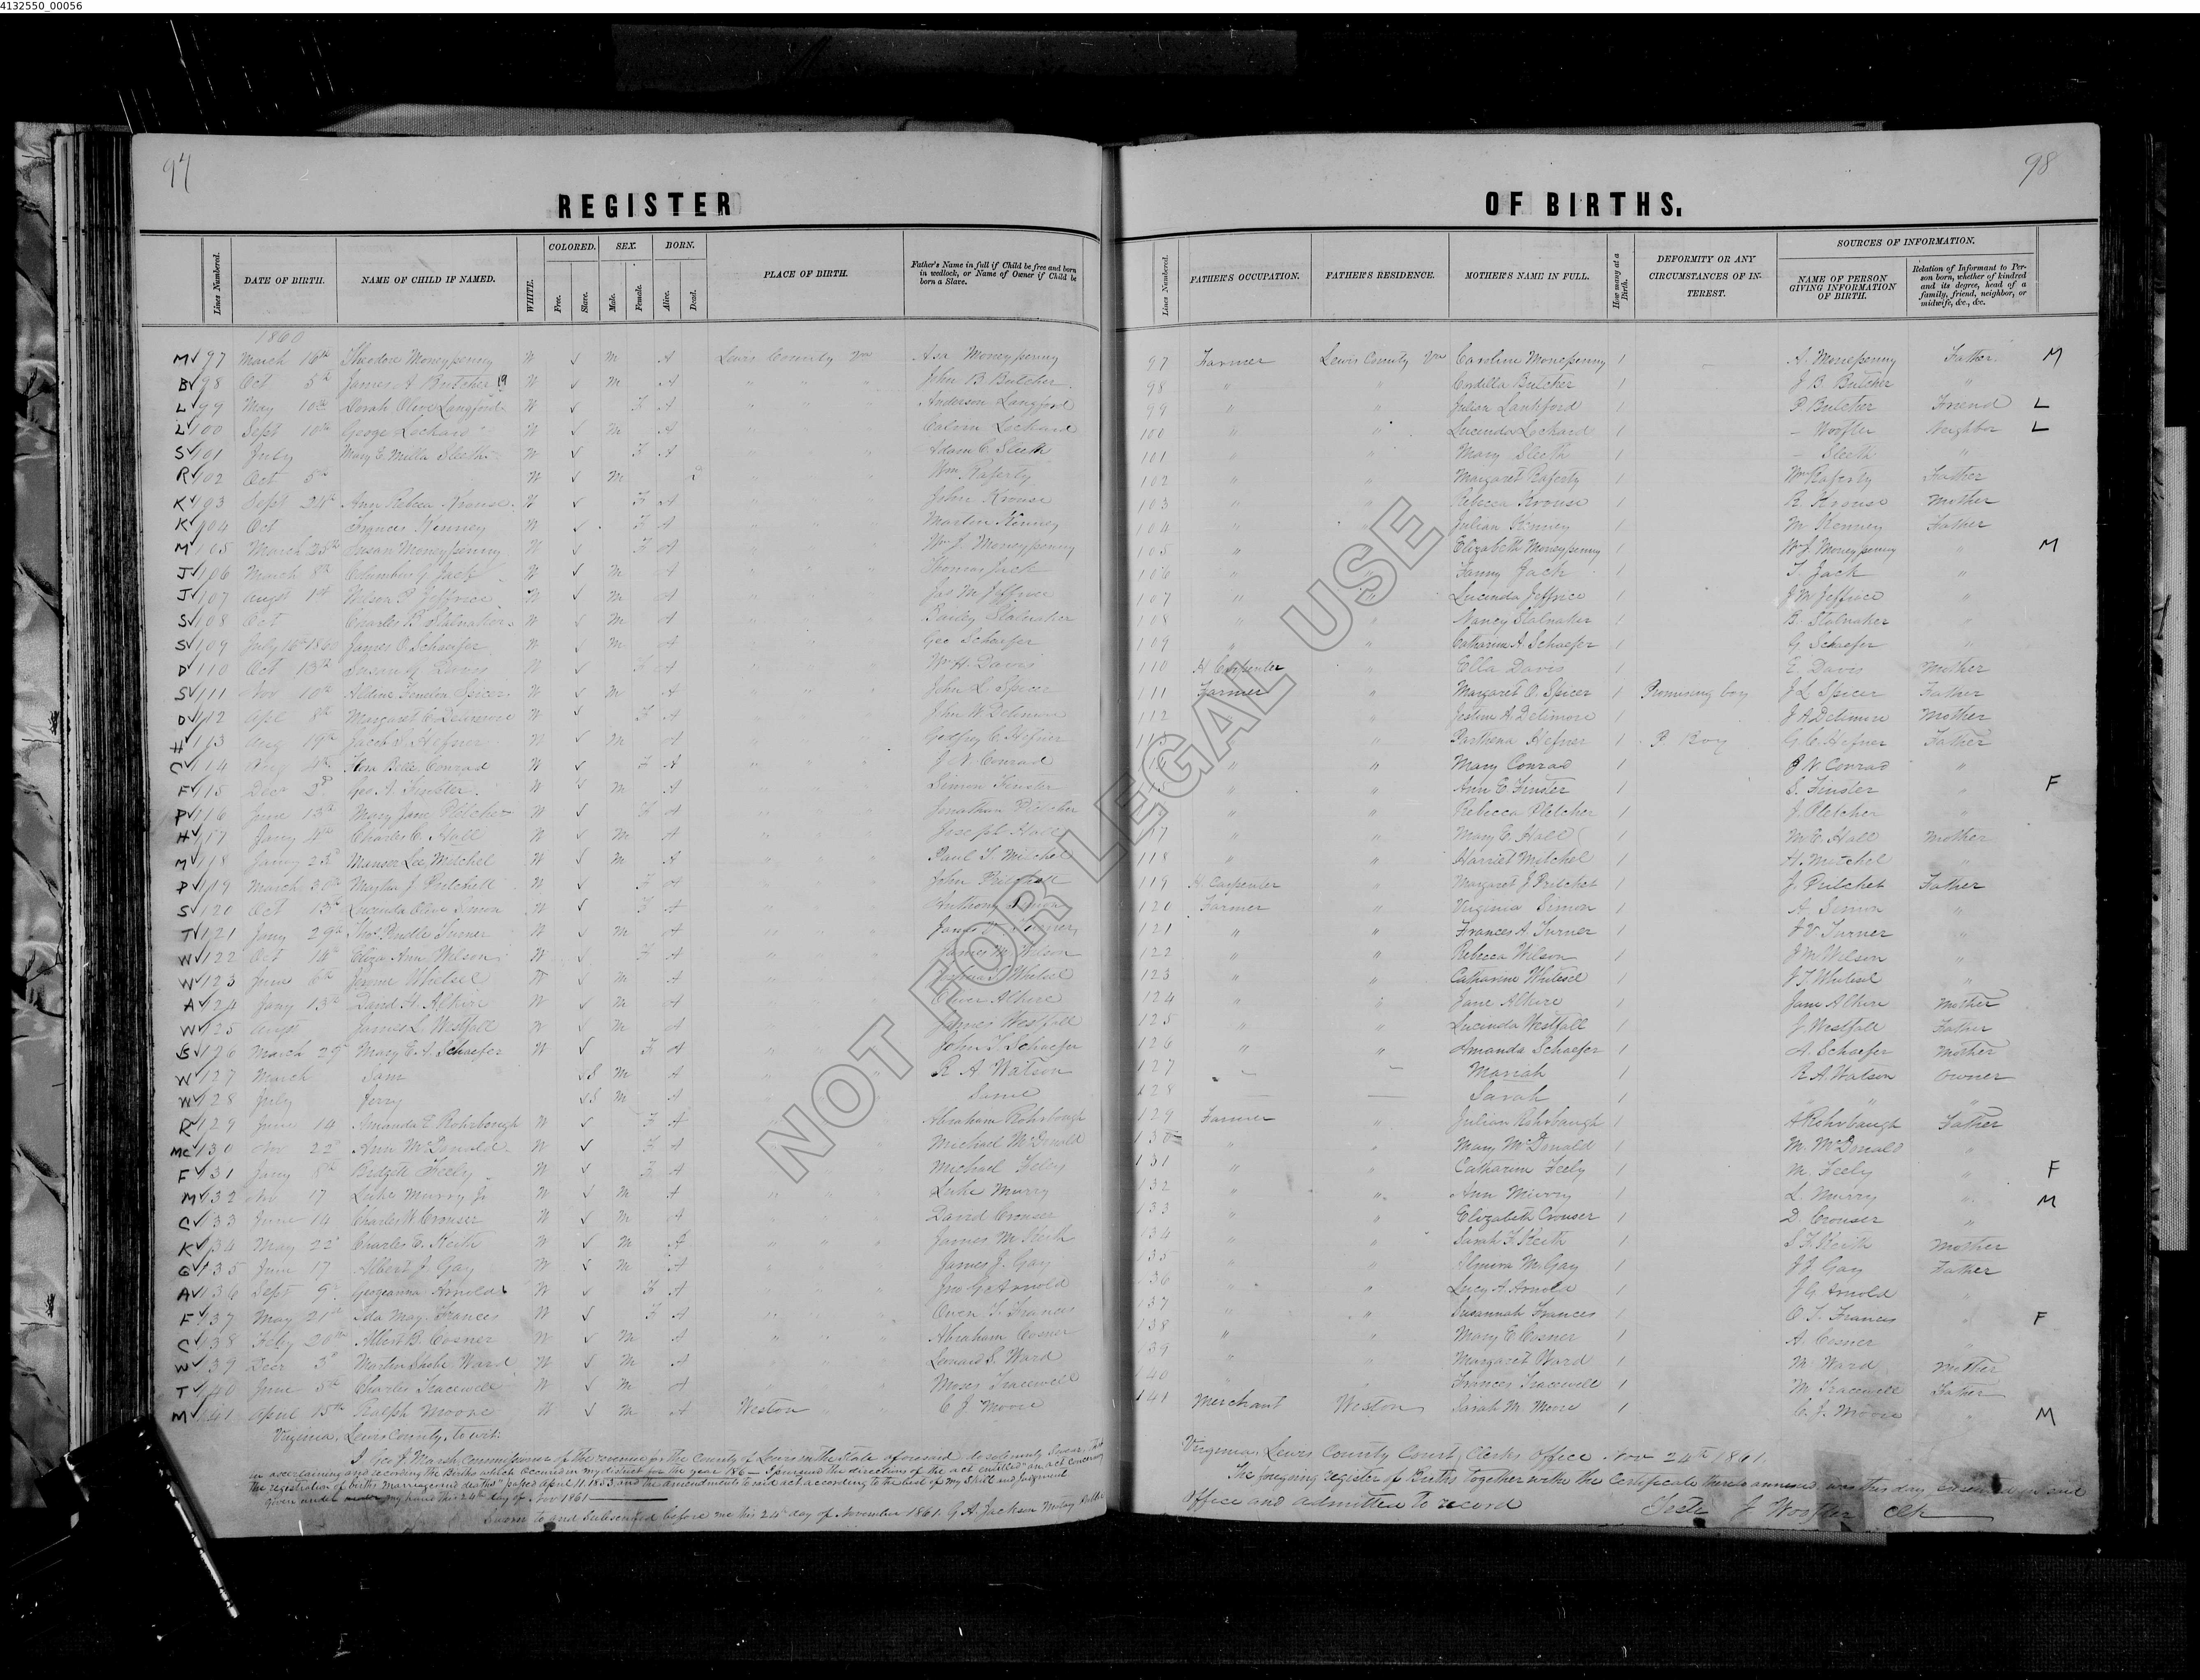 4132550_00056
97
98
REGISTER OF BIRTHS.
Lines Numbered. DATE OF BIRTH. NAME OF CHILD IF NAMED. WHITE. COLORED. Free. Slave. SEX. Male. Female. BORN. Alive. Dead. PLACE OF BIRTH. Father's Name in full if Child be free and born in wedlock, or Name of Owner if Child be born a Slave.
Lines Numbered. FATHER'S OCCUPATION. FATHER'S RESIDENCE. MOTHER'S NAME IN FULL. How many at a Birth. DEFORMITY OR ANY CIRCUMSTANCES OF INTEREST. SOURCES OF INFORMATION. NAME OF PERSON GIVING INFORMATION OF BIRTH. Relation of Informant to Person born, whether of kindred and its degree, head of a family, friend, neighbor, or midwife, &c., &c.
1860
M 97 March 16th Theodore Moneypenny W M A Lewis County Va Asa Moneypenny 97 Farmer Lewis County Va Caroline Monepenny 1 A. Monepenny Father M
B 98 Oct 5th James A Butcher W M A " " " John B Butcher 98 " " Cordilla Butcher 1 J B Butcher "
L 99 May 10th Dorah Olive Langford W F A " " " Anderson Langford 99 " " Julian Lankford 1 P Butcher Friend L
L 100 Sept 10th George Lockard W M A " " " Calvin Lockard 100 " " Lucinda Lockard 1 - Woofter Neighbor L
S 101 July Mary E. Milla Sleeth W F A Adam C. Sleeth 101 " " Mary Sleeth 1 - Sleeth "
R 102 Oct 5th W M D Wm Raferty 102 " " Margaret Raferty 1 Wm Raferty Father
K 103 Sept 24th Ann Rebeca Krouse W F A John Krouse 103 " " Rebecca Krouse 1 R. Krouse Mother
K 104 Oct Frances Kenney W F A Martin Kenney 104 " " Julian Kenney 1 M Kenney Father
M 105 March 25th Susan Moneypenny W F A Wm J. Moneypenny 105 " " Elizabeth Moneypenny 1 Wm J Moneypenny " M
J 106 March 8th Columbus G Jack W M A Thomas Jack 106 " " Fanny Jack 1 T. Jack "
J 107 Augst 1st Wilson P Jeffries W M A Jas M Jeffries 107 " " Lucinda Jeffrice 1 J M Jeffrice "
S 108 Oct Charles B Stalnaker W M A Bailey Stalnaker 108 " " Nancy Stalnaker 1 B. Stalnaker "
S 109 July 16th 1860 James O. Schaefer W M A Geo Schaefer 109 " " Catharine A. Schaefer 1 G Schaefer "
D 110 Oct 13th Davis W F A Wm H. Davis 110 H Carpenter " Ella Davis 1 E Davis Mother
S 111 Nov 10th Aldine Fenelon Spicer W M A John L. Spicer 111 Farmer " Margaret O. Spicer 1 Promising boy J L Spicer Father
D 112 Apl 8th Margaret C. W F A John W Delimore 112 " Jestin A. Delimore 1 J A Delimore Mother
H 113 Aug 19th Jacob Hefner W M A Godfrey C Hefner " " Parthena Hefner 1 P Boy G. C. Hefner Father
C 114 Aug 4th Flora Belle Conrad W F A J. N. Conrad " " Mary Conrad 1 J N Conrad "
F 115 Decr 2d Geo A. Finster W M A Simon Finster " " Ann E Finster 1 S. Finster " F
P 116 June 13th Mary Jane Pletcher W F A Jonathan Pletcher " " Rebecca Pletcher 1 J. Pletcher "
H 117 Jany 4th Charles C. Hall W M A Joseph Hall " " Mary E. Hall 1 M. E. Hall Mother
M 118 Jany 23d Lee Mitchel W M A Paul T. Mitchel 118 " " Harriet Mitchel 1 H. Mitchel "
P 119 March 30th J Pritchett W F A John Pritchett 119 H. Carpenter " Margaret J Pritchet 1 J. Pritchet Father
S 120 Oct 13th Lucinda Olive Simon W F A Anthony Simon 120 Farmer " Virginia Simon 1 A. Simon "
T 121 Jany 29th Thos Turner W M A James V. Turner 121 " " Frances A. Turner 1 J V Turner "
W 122 Oct 14th Eliza Ann Wilson W F A James M. Wilson 122 " " Rebecca Wilson 1 J M Wilson "
W 123 June 6th Jerome Whitsel W M A Whetsel 123 " " Catharine Whitesel 1 J T Whitesel "
A 124 Jany 13th David H. Alkire W M A Alkire 124 " " Jane Alkire 1 Jane Alkire Mother
W 125 Augst James L. Westfall W M A James Westfall 125 " " Lucinda Westfall 1 J Westfall Father
S 126 March 29th Mary E. A. Schaefer W F A John T Schaefer 126 " " Amanda Schaefer 1 A. Schaefer Mother
W 127 March Sam S M A R A Watson 127 Mariah 1 R. A. Watson Owner
W 128 July Jerry S M A Same 128 Sarah 1 " "
R 129 June 14 Amanda E Rohrbough W F A Abraham Rohrbough 129 Farmer " Julian Rohrbaugh 1 A Rohrbaugh Father
Mc 130 Nov 22d Ann McDonald W F A Michael McDonald 130 " " Mary McDonald 1 M. McDonald "
F 131 Jany 8th Bridgett Feely W F A Michael Feley 131 " " Catharine Feely 1 M. Feely " F
M 132 Nov 17 Luke Murry Jr W M A Luke Murry 132 " " Ann Murry 1 L. Murry " M
C 133 June 14 Charles W Crouser W M A David Crouser 133 " " Elizabeth Crouser 1 D. Crouser "
K 134 May 22d Charles E. Keith W M A James M Keith 134 " " Sarah F. Keith 1 S. F. Keith Mother
G 135 June 17 Albert J. Gay W M A James J. Gay 135 " " Almira M. Gay 1 J J Gay Father
A 136 Sept 9th Georgeanna Arnold W F A Jno G Arnold 136 " " Lucy A. Arnold 1 J G Arnold "
F 137 May 21st Ida May Frances W F A Owen T. Frances 137 " " Susannah Frances 1 O. T. Frances " F
C 138 Feby 20th Albert B. Cosner W M A Abraham Cosner 138 " " Mary E Cosner 1 A. Cosner "
W 139 Decr 3d Martin Ward W M A Ward 139 " " Margaret Ward 1 M Ward Mother
T 140 June 5th Charles Tracewell W M A Moses Tracewell 140 Frances Tracewell 1 M Tracewell Father
M 141 April 15th Ralph Moore W M A Weston " " C J Moore 141 Merchant Weston Sarah M. Moore 1 C. J. Moore " M
Virginia, Lewis County, to wit:
I Geo J. Marsh, Commissioner of the revenue for the County of Lewis in the State aforesaid, do solemnly swear, that
in ascertaining and recording the Births which Occurred in my district for the year 186- I pursued the directions of the act entitled "an act concerning
the registration of births marriages and deaths" passed April 11. 1853, and the amendments to said act according to the best of my Skill and Judgment
given under my hand this 24th day of Nov 1861
Sworn to and Subscribed before me this 24th day of November 1861. G. A. Jackson Notary Public
Virginia, Lewis County Court Clerks Office Nov 24th 1861
The foregoing register of Births together with the Certificate thereto annexed was this day presented in said
office and admitted to record
Teste J Woofter Clk
NOT FOR LEGAL USE